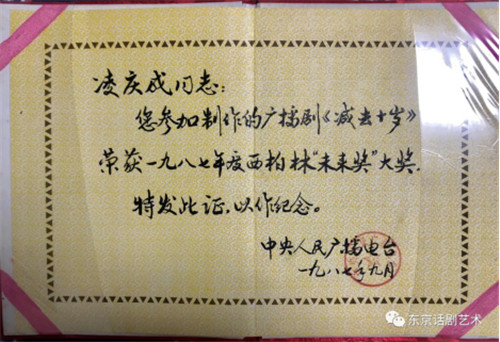 凌庆成同志：
您参加制作的广播剧《减去十岁》
荣获一九八七年度西柏林“未来奖”大奖，
特发此证，以作纪念。
中央人民广播电台
一九八七年九月
东京话剧艺术